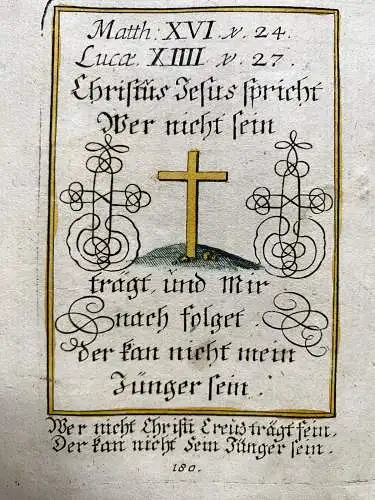 Matth: XVI v. 24.
Lucæ XIIII v. 27.
Christus Jesus spricht
Wer nicht sein
trägt, und Mir
nach folget.
Der kan nicht mein
Jünger sein.
Wer nicht Christi Creutz trägt sein.
Der kan nicht Sein Jünger sein.
180.